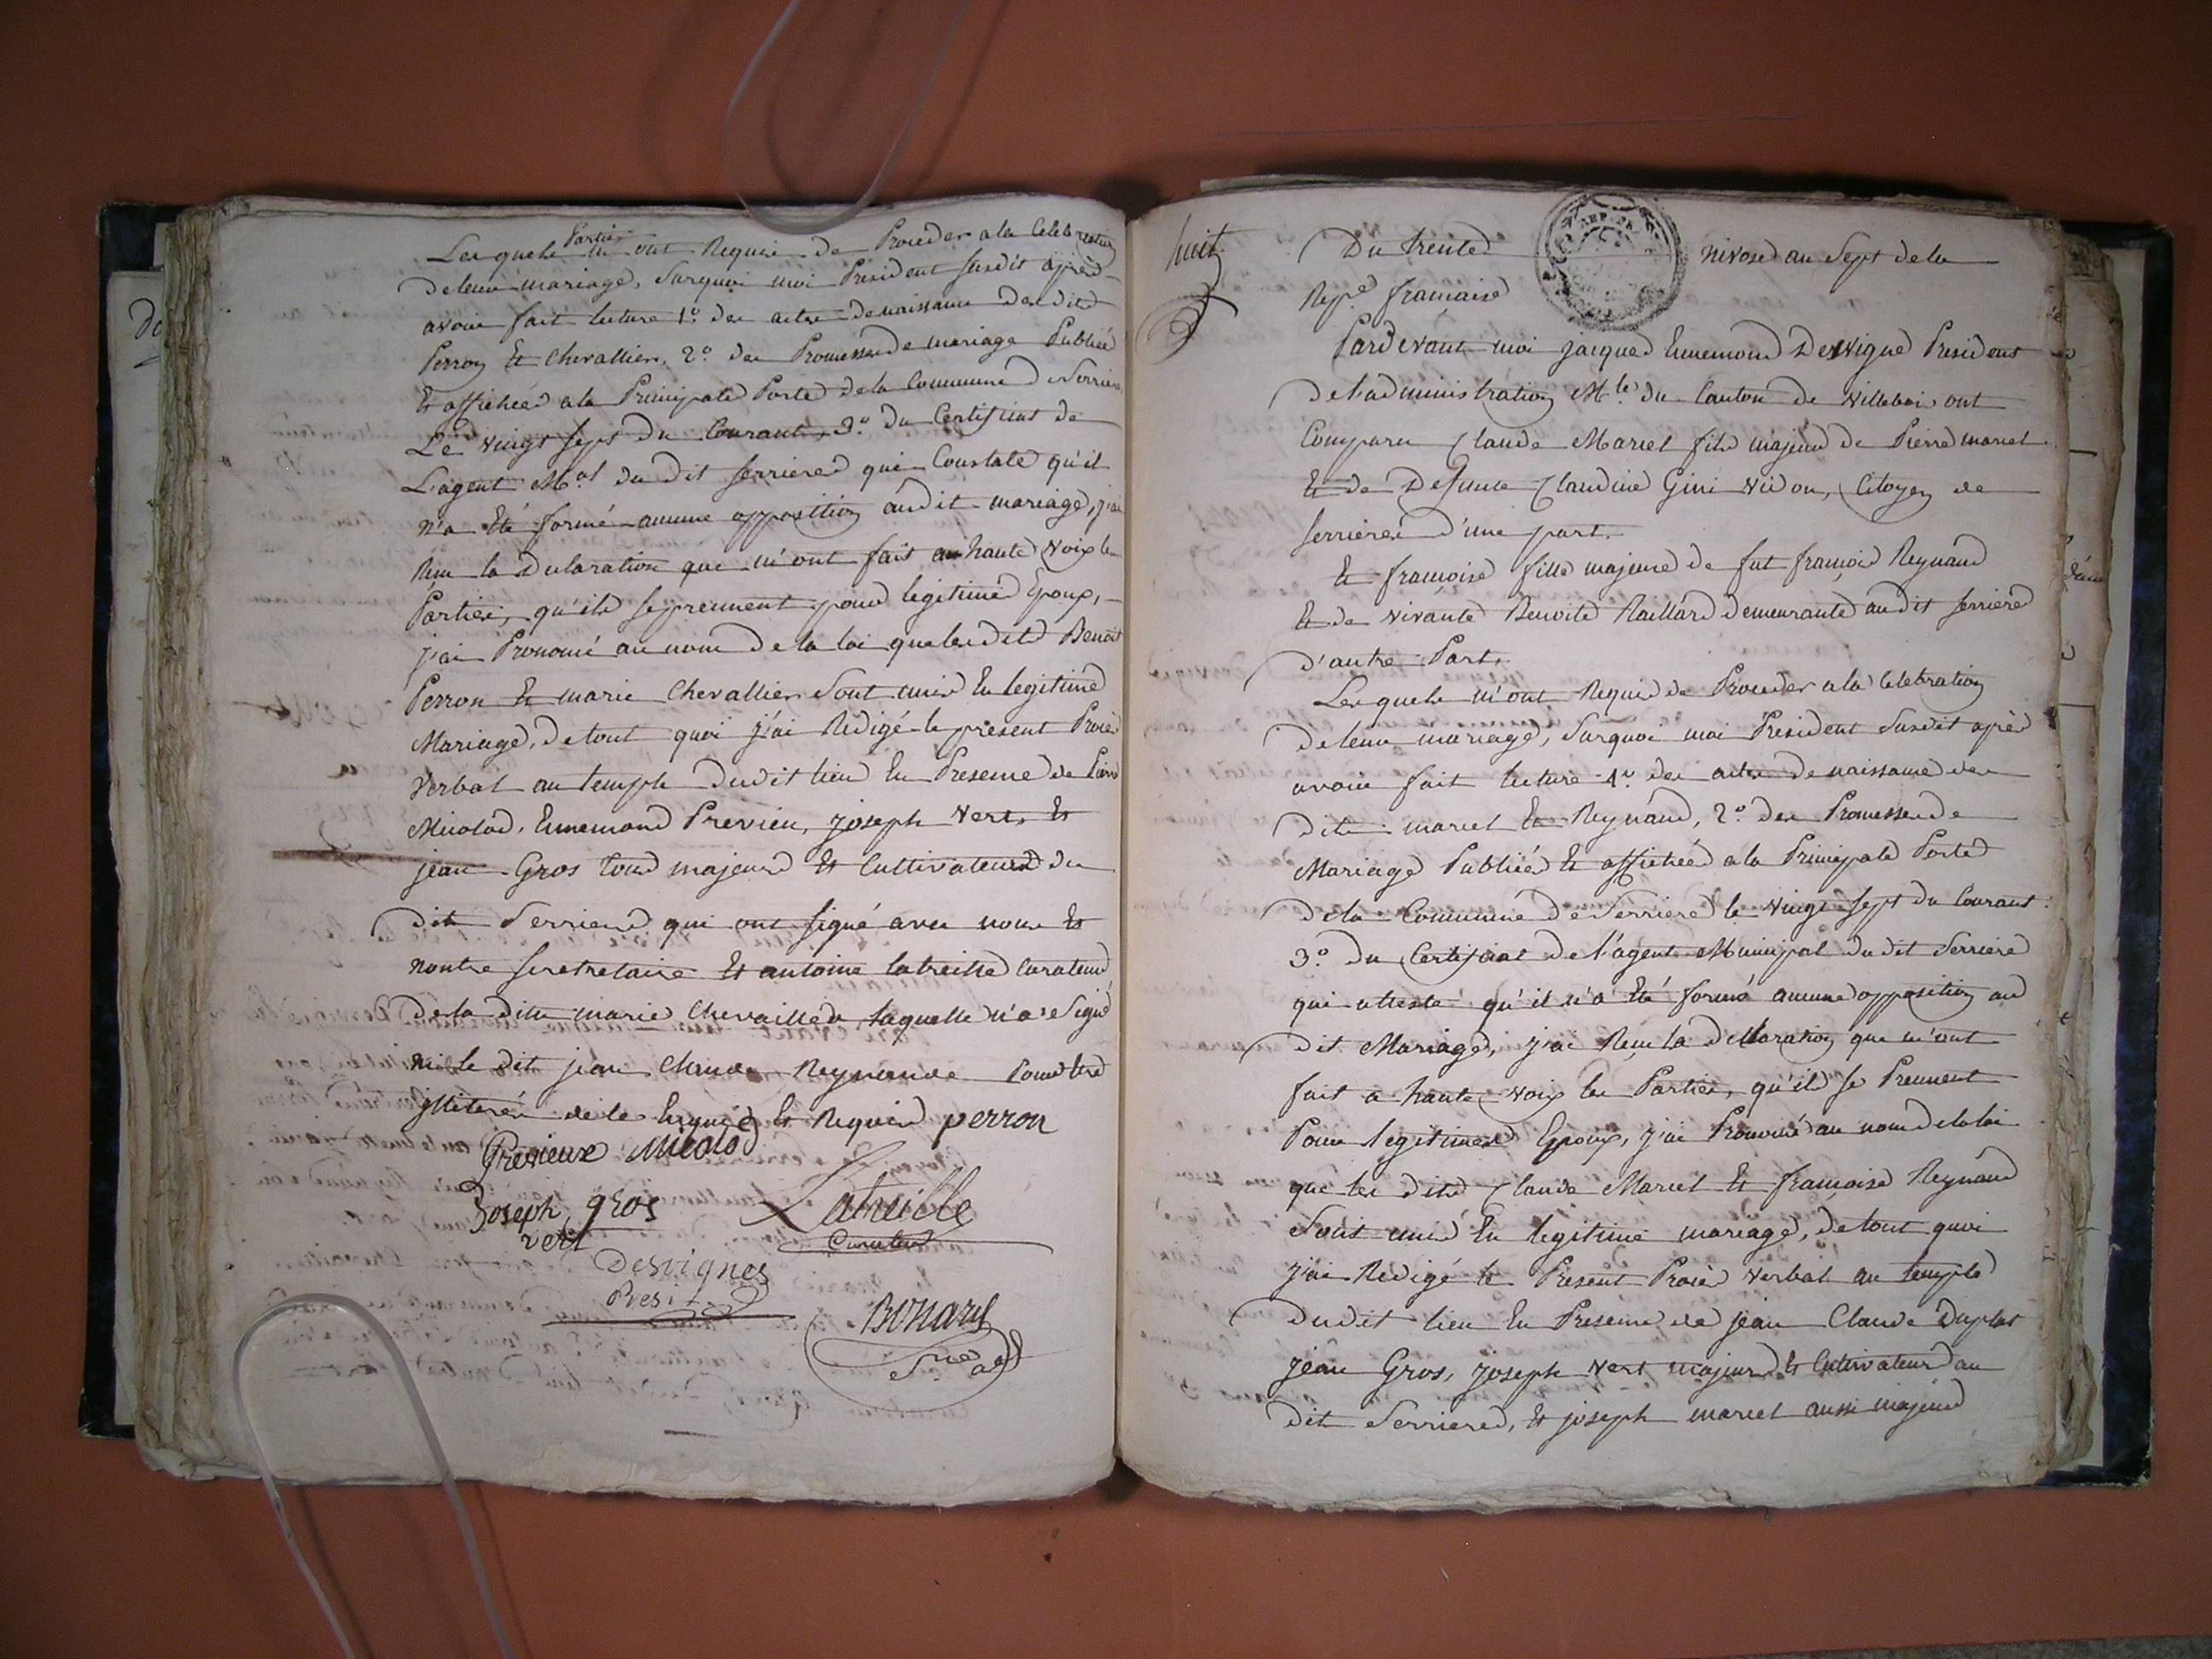 Lesquels Parties m'ont Requis de Proceder a la Celebration
de leur mariage, Surquoi moi President susdit après
avoir fait lecture 1.º des actes de naissance desdits
Perron Et Chevallier, 2.º des Promesses de mariage Publiéés
Et affichéés a la Principale Porte de la Commune de Serriere
Le vingt sept du Courant, 3.º du Certificat de
L'agent M.al du dit serrieres qui Constate qu'il
n'a Eté formé aucune opposition audit mariage, j'ai
Reçu la declaration que m'ont fait a haute voix les
Parties, qu'ils se prennent pour legitimes Epoux,
j'ai Prononcé au nom de la loi que lesdits Benoit
Perron Et marie Chevallier sont unis En legitime
Mariage, de tout quoi j'ai Redigé le présent Procès
Verbal au temple dudit lieu En Presence de
Micolod, Ennemond Prévieu, joseph vert, Et
jean Gros tous majeurs Et Cultivateurs du
dit Serrieres qui ont signé avec nous Et
nontre secretelaire Et antoine latreille Curateur
de la dite marie Chevallier laquelle n'a Signé
ni le dit jean Claude Reynaude Pour
illiteréé de le Enquis Et Requis perron
Previeux Micolod
Joseph gros Latreille
vert Curateur
Desvignes
Presi.
Bonard
huit
Du trente nivose an Sept de la
Rep.e française
Pardevant moi jacques Ennemond Desvigne President
de l'administration M.le du Canton de villebois ont
Comparu Claude Marcel fils majeur de Pierre marcel
Et de defunte Claudine Gini vidon, Citoyen de
serrieres d'une part.
Et françoise fille majeure de fut françois Reynaud
Et de vivante Benoite Raillard demeurante au dit serrieres
d'autre Part,
Lesquels m'ont Requis de Proceder a la Celebration
de leur mariage, Surquoi moi President Susdit après
avoir fait lecture 1.º des actes de naissance des
dits marcel Et Reynaud, 2.º des Promesses de
Mariage Publiéés Et affichéés a la Principale Porte
de la Commune de Serrieres le vingt sept du Courant
3.º du Certificat de l'agent Municipal du dit Serriere
qui atteste qu'il n'a Eté formé aucune opposition au
dit Mariage, j'ai Reçu la declaration que m'ont
fait a haute voix les Parties, qu'ils se Prennent
Pour legitimes Epoux, j'ai Prononcé au nom de la loi
que les dits Claude Marcel Et françoise Reynaud
Sont unis En legitime mariage, de tout quoi
j'ai Redigé le Present Procès verbal au temple
dudit lieu En Presence de jean Claude Duplat
jean Gros, joseph vert majeurs Et Cultivateurs au
dit Serrieres, Et joseph marcel aussi majeurs